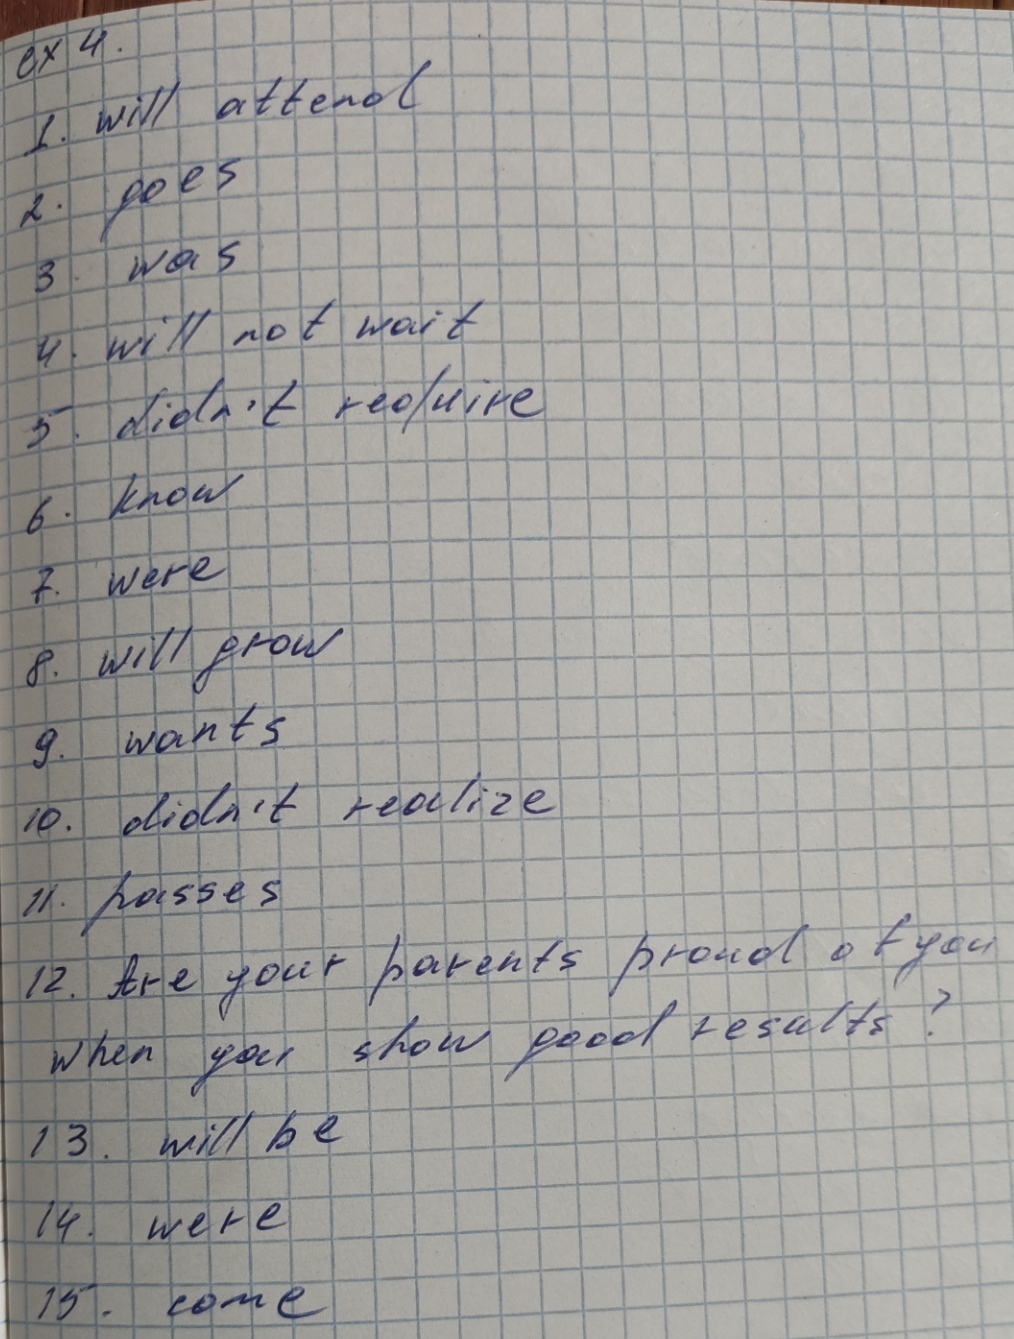 ex 4.
1. will attend
2. goes
3. was
4. will not wait
5. didn't require
6. know
7. were
8. will grow
9. wants
10. didn't realize
11. passes
12. Are your parents proud of you
when you show good results?
13. will be
14. were
15. come